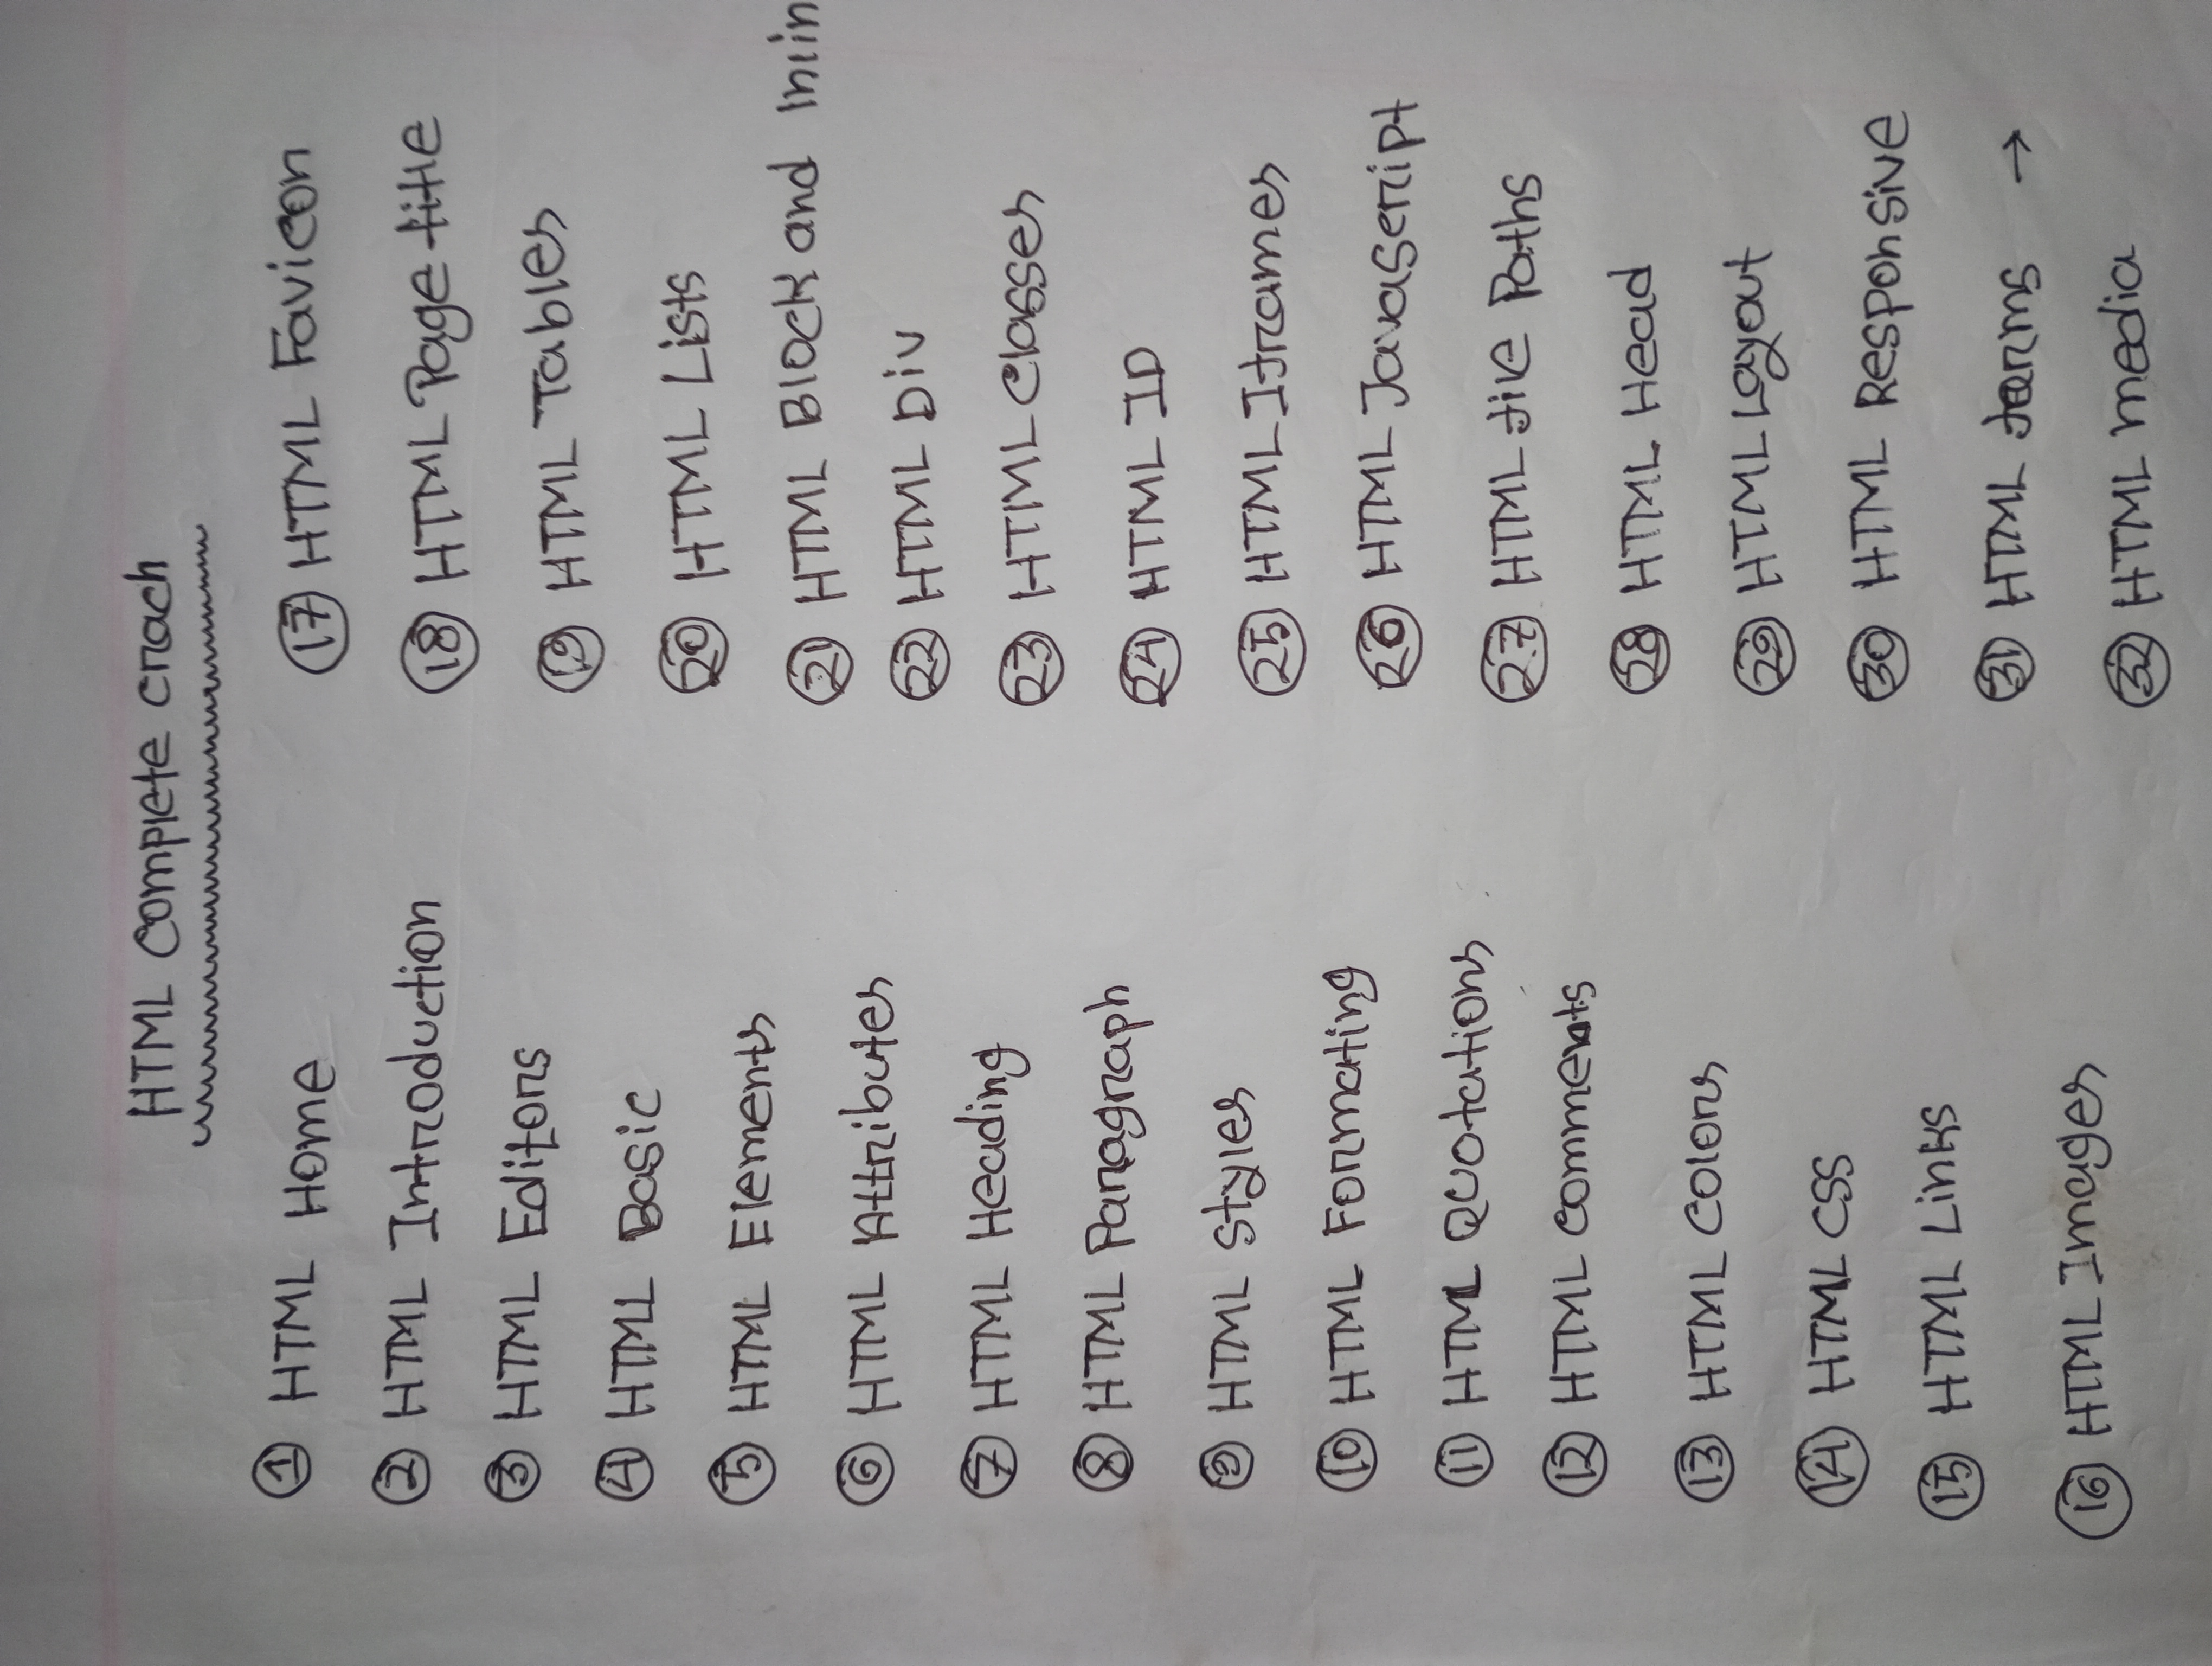 HTML Complete crach
① HTML Home
② HTML Introduction
③ HTML Editors
④ HTML Basic
⑤ HTML Elements
⑥ HTML Attributes
⑦ HTML Heading
⑧ HTML Paragraph
⑨ HTML Styles
⑩ HTML Formating
⑪ HTML Quotations
⑫ HTML Comments
⑬ HTML Colors
⑭ HTML CSS
⑮ HTML Links
⑯ HTML Images
⑰ HTML Favicon
⑱ HTML Page title
⑲ HTML Tables
⑳ HTML Lists
㉑ HTML Block and
㉒ HTML Div
㉓ HTML Classes
㉔ HTML ID
㉕ HTML Iframes
㉖ HTML JavaScript
㉗ HTML file Paths
㉘ HTML Head
㉙ HTML Layout
㉚ HTML Responsive
㉛ HTML forms →
㉜ HTML media